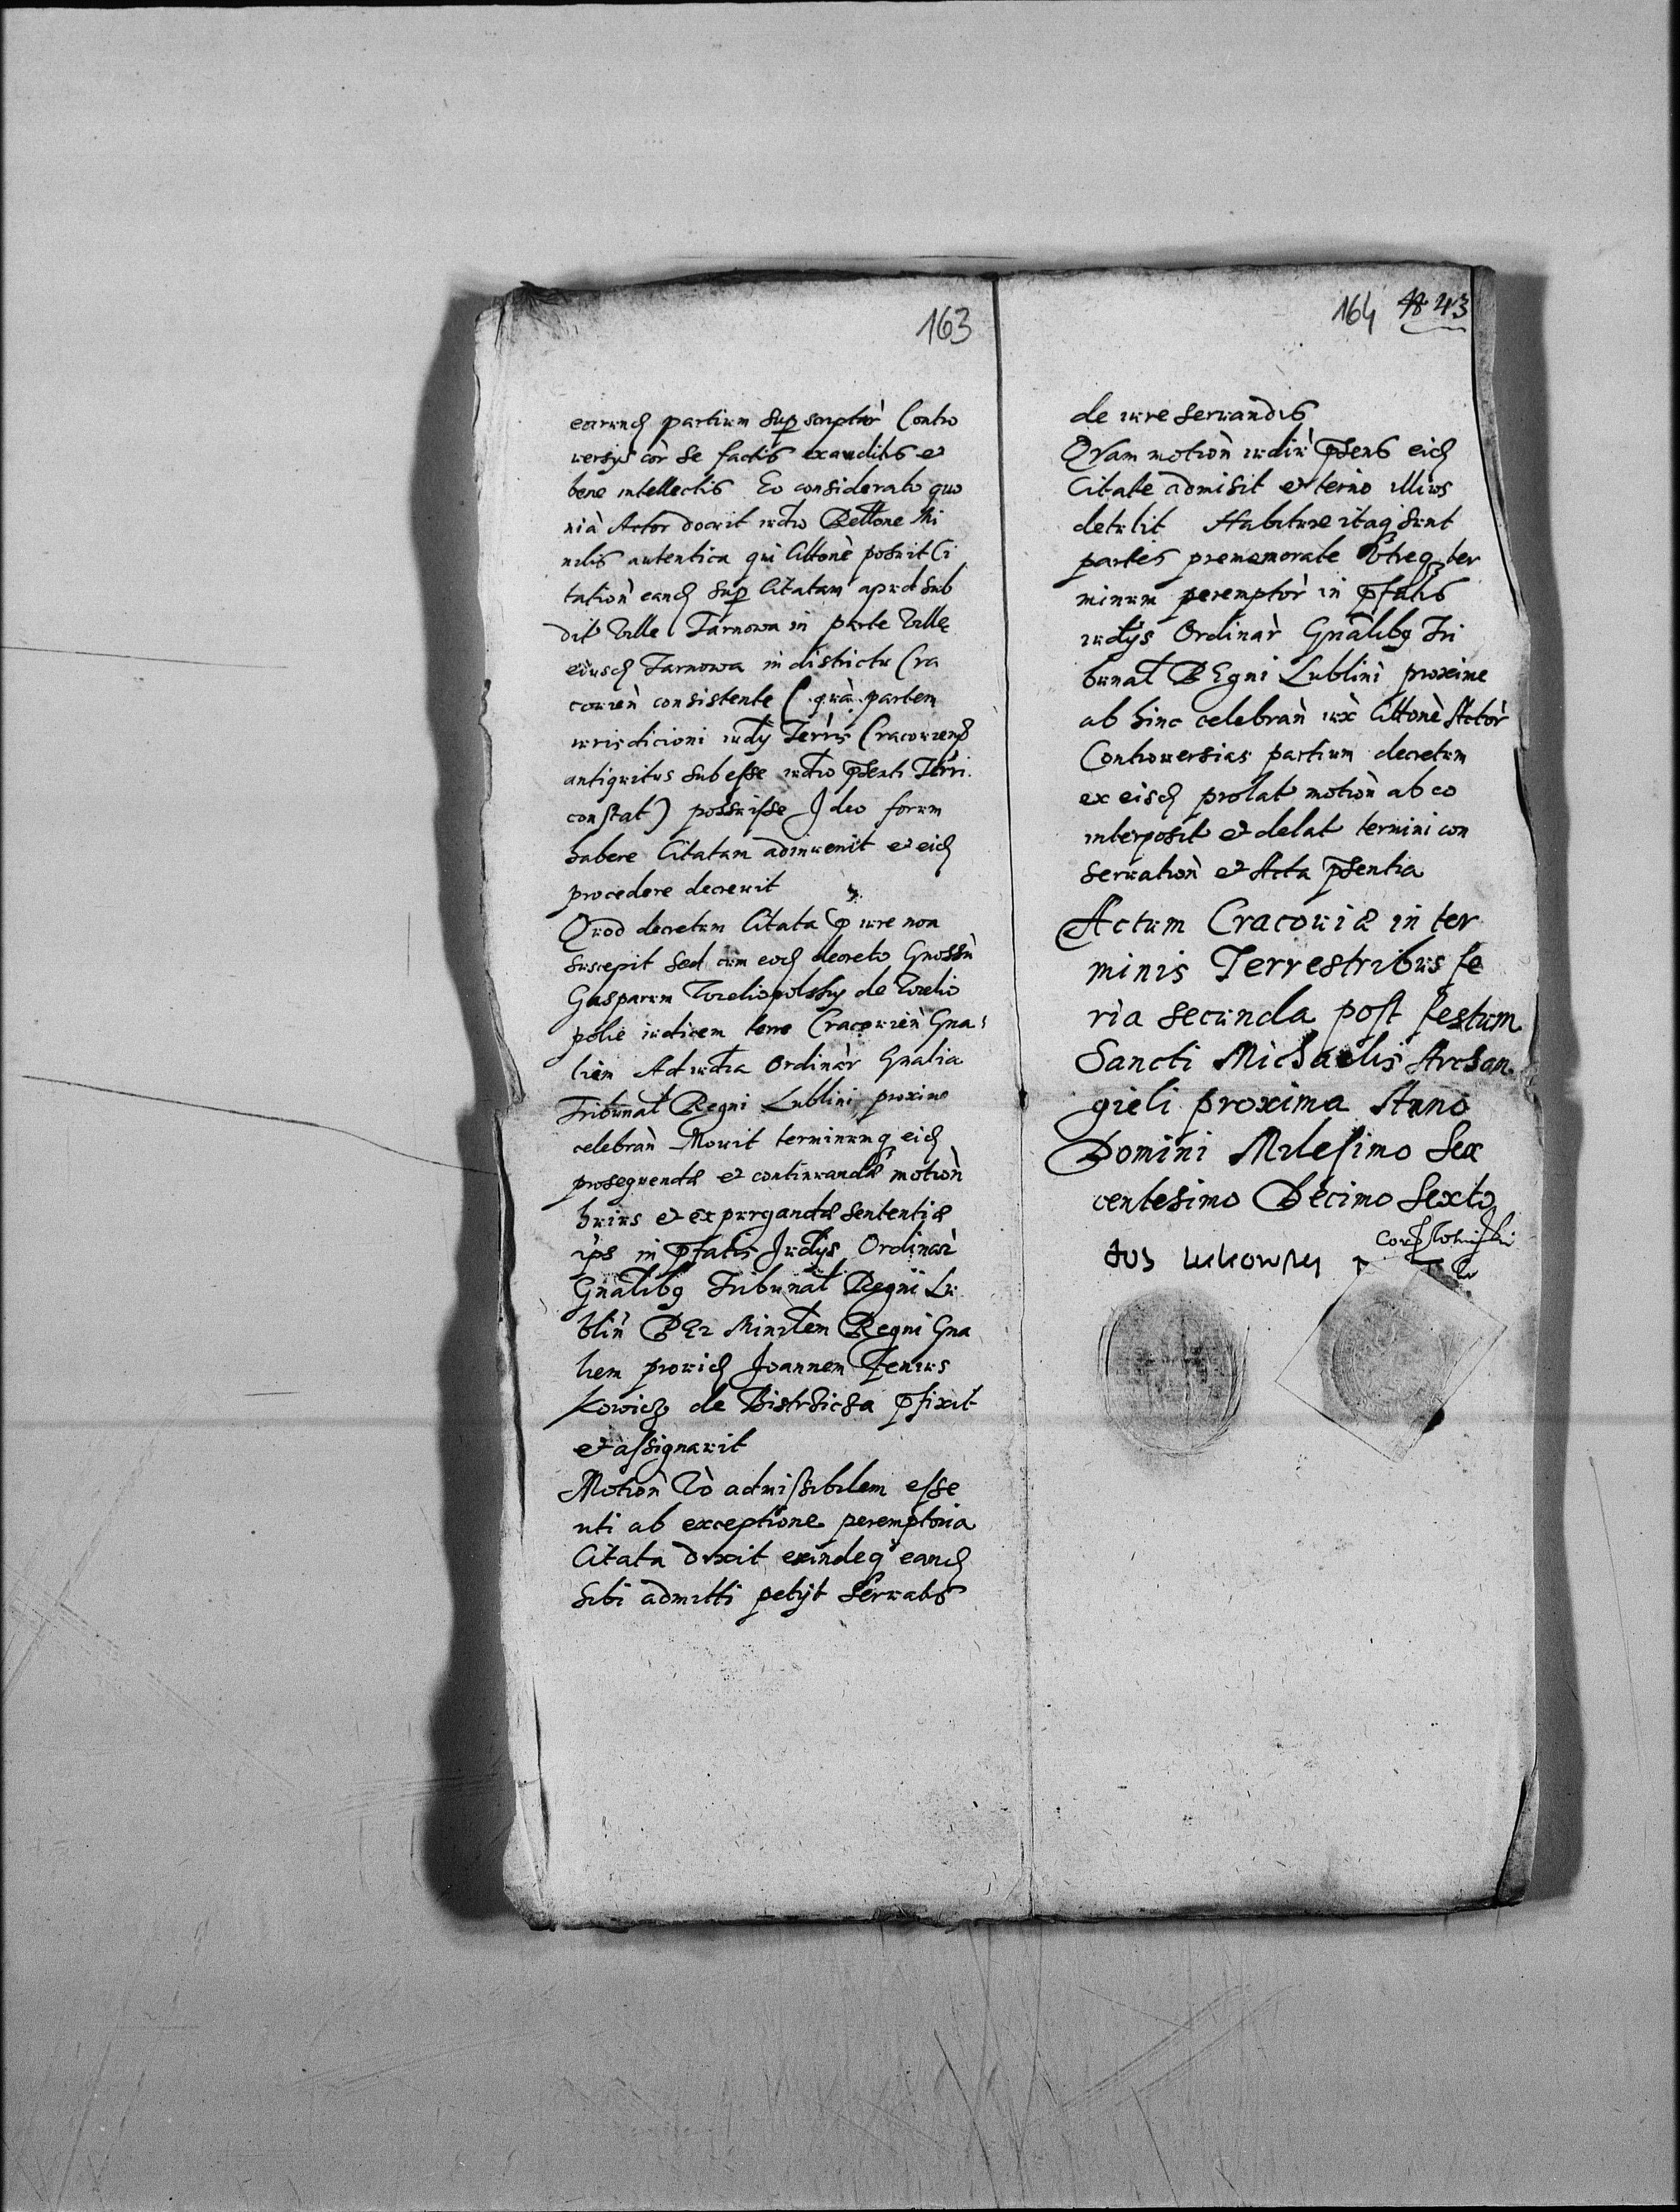 163
earund partium supscriptor Contro
versys cor se factis exauditis et
bene intellectis Eo considerato quo
nia Actor docuit iudio Rellone Mi
nilis autentica qui Cittone posuit Ci
tation eand sup Citatam apud Sub
dit Ville Tarnowa in parte Ville
eiusd Tarnowa in districtu Cra
covien consistente (qua partem
iurisdicioni iudy Terris Cracoviens
antiquitus subesse iudio psenti Terri
constat) possuisse Ideo forum
habere Citatam adinvenit et eid
procedere decrevit
Quod decretum Citata p iure non
suscepit sed cum eod decreto Gnossu
Gasparum Wieliopolsky de Wielio
pole iudicem terre Cracovien Gna
lien Ad iudia Ordinar Gnalia
Tribunal Regni Lublini proxime
celebran Movit terminumq eid
prosequendæ et continuandæ motion
huius et expurgandæ sententiæ
ips in pfatis Judys Ordinar
Gnalibq Tribunal Regni Lu
blin PEr Minilem Regni Gna
lem provid Joannem
kowicz de Bistrzicza pfixit
et assignavit
Motion Vo admissibilem esse
uti ab exceptione peremptoria
Citata dixit exindeq eand
sibi admitti petyt servatis
164 43
de iure servandis
QVam motion iudiu psens eid
Citate admisit et terno illius
detulit Habituræ itaq sunt
partes prememorate Vtreq ter
minum peremptor in pfatis
iudys Ordinar Gnalibq Tri
bunal REgni Lublini proxime
ab hinc celebran iux Cittone Actor
Controversias partium decretum
ex eisd prolat motion ab eo
interposit et delat termini con
servation et Acta psentia
Actum Cracoviæ in ter
minis Terrestribus fe
ria secunda post festum
Sancti Michaelis Archan
gieli proxima Anno
Domini Milesimo Sex
centesimo Decimo Sexto
Lukowsky